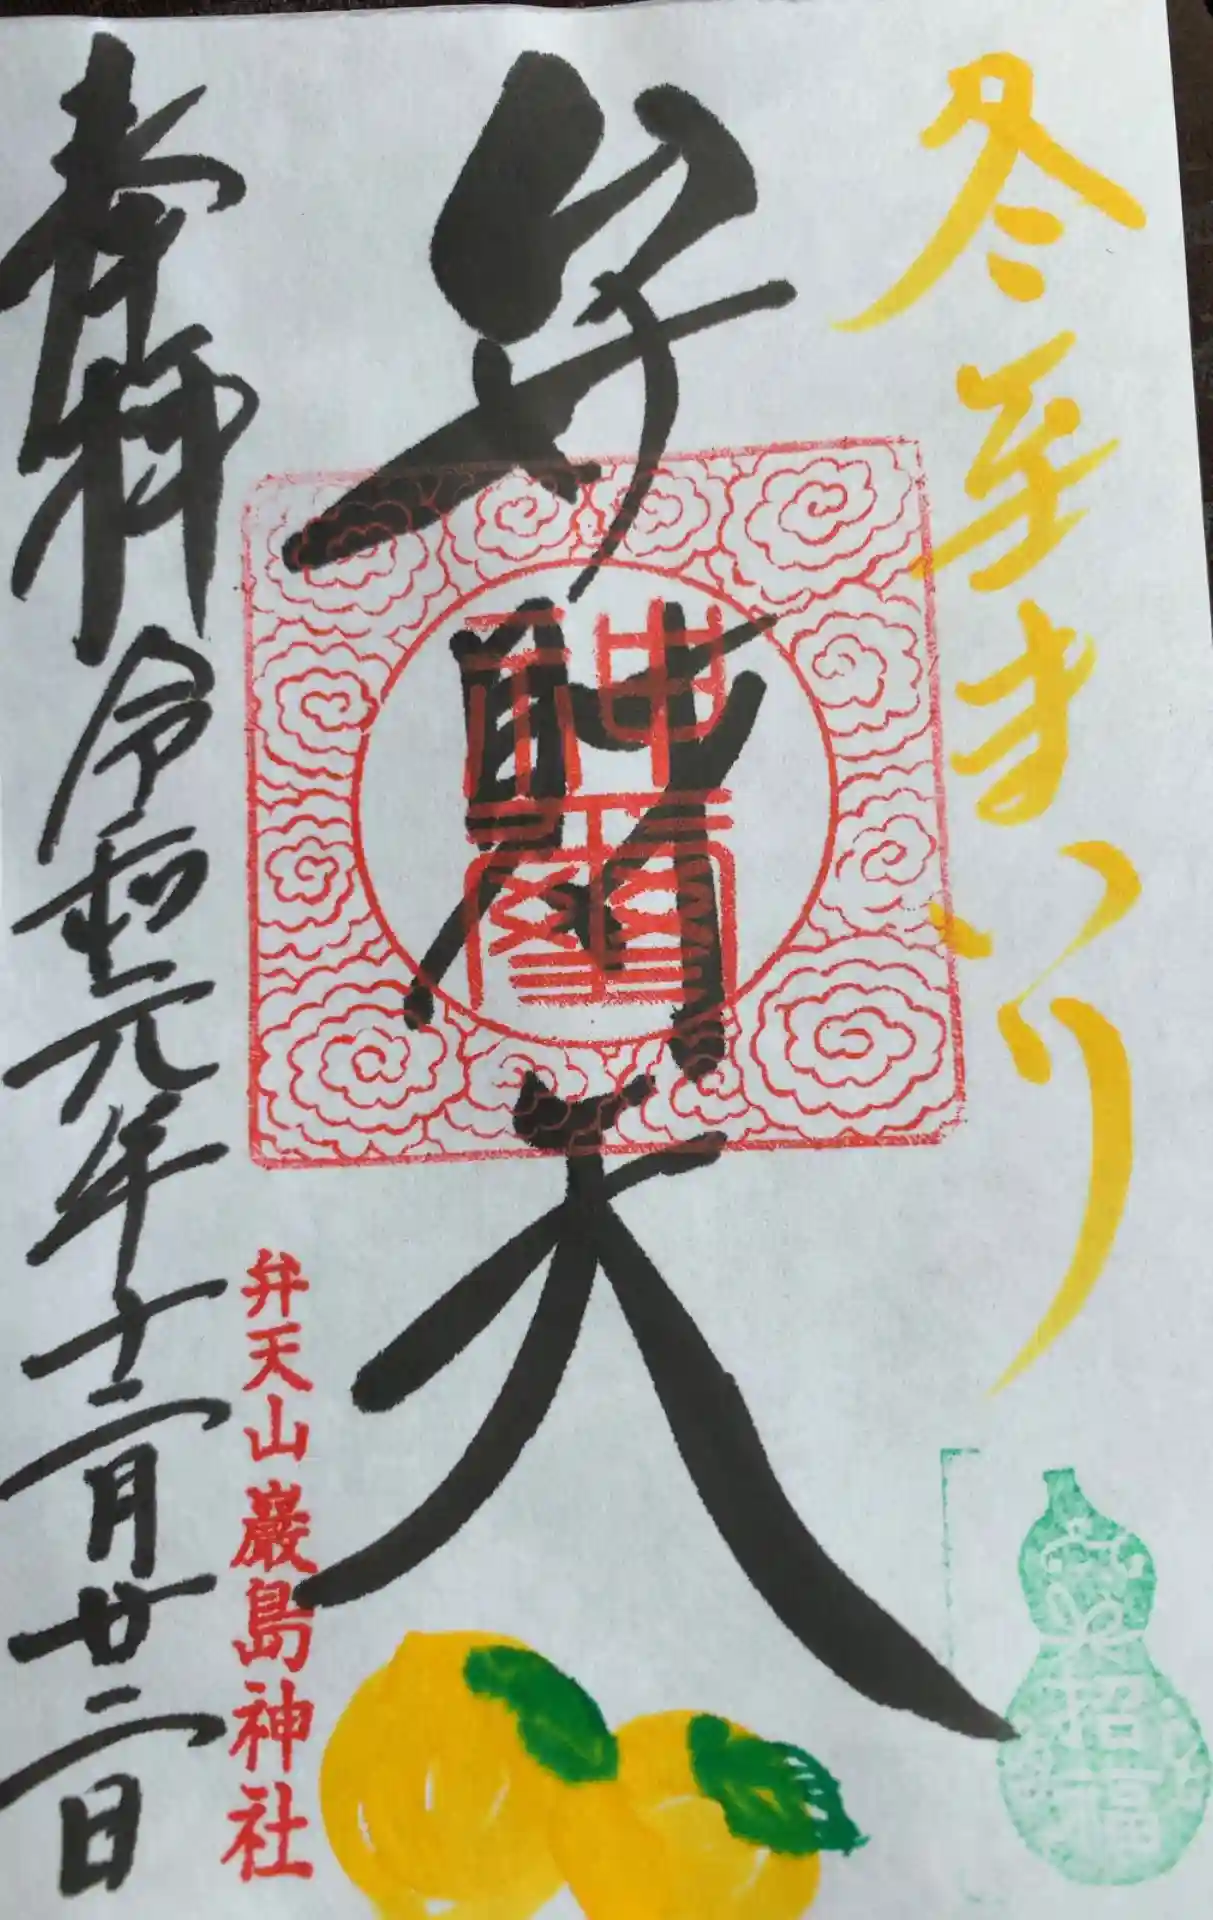 冬至まいり
弁財天
神璽
弁天山 巌島神社
奉拝 令和元年十二月廿二日
招福